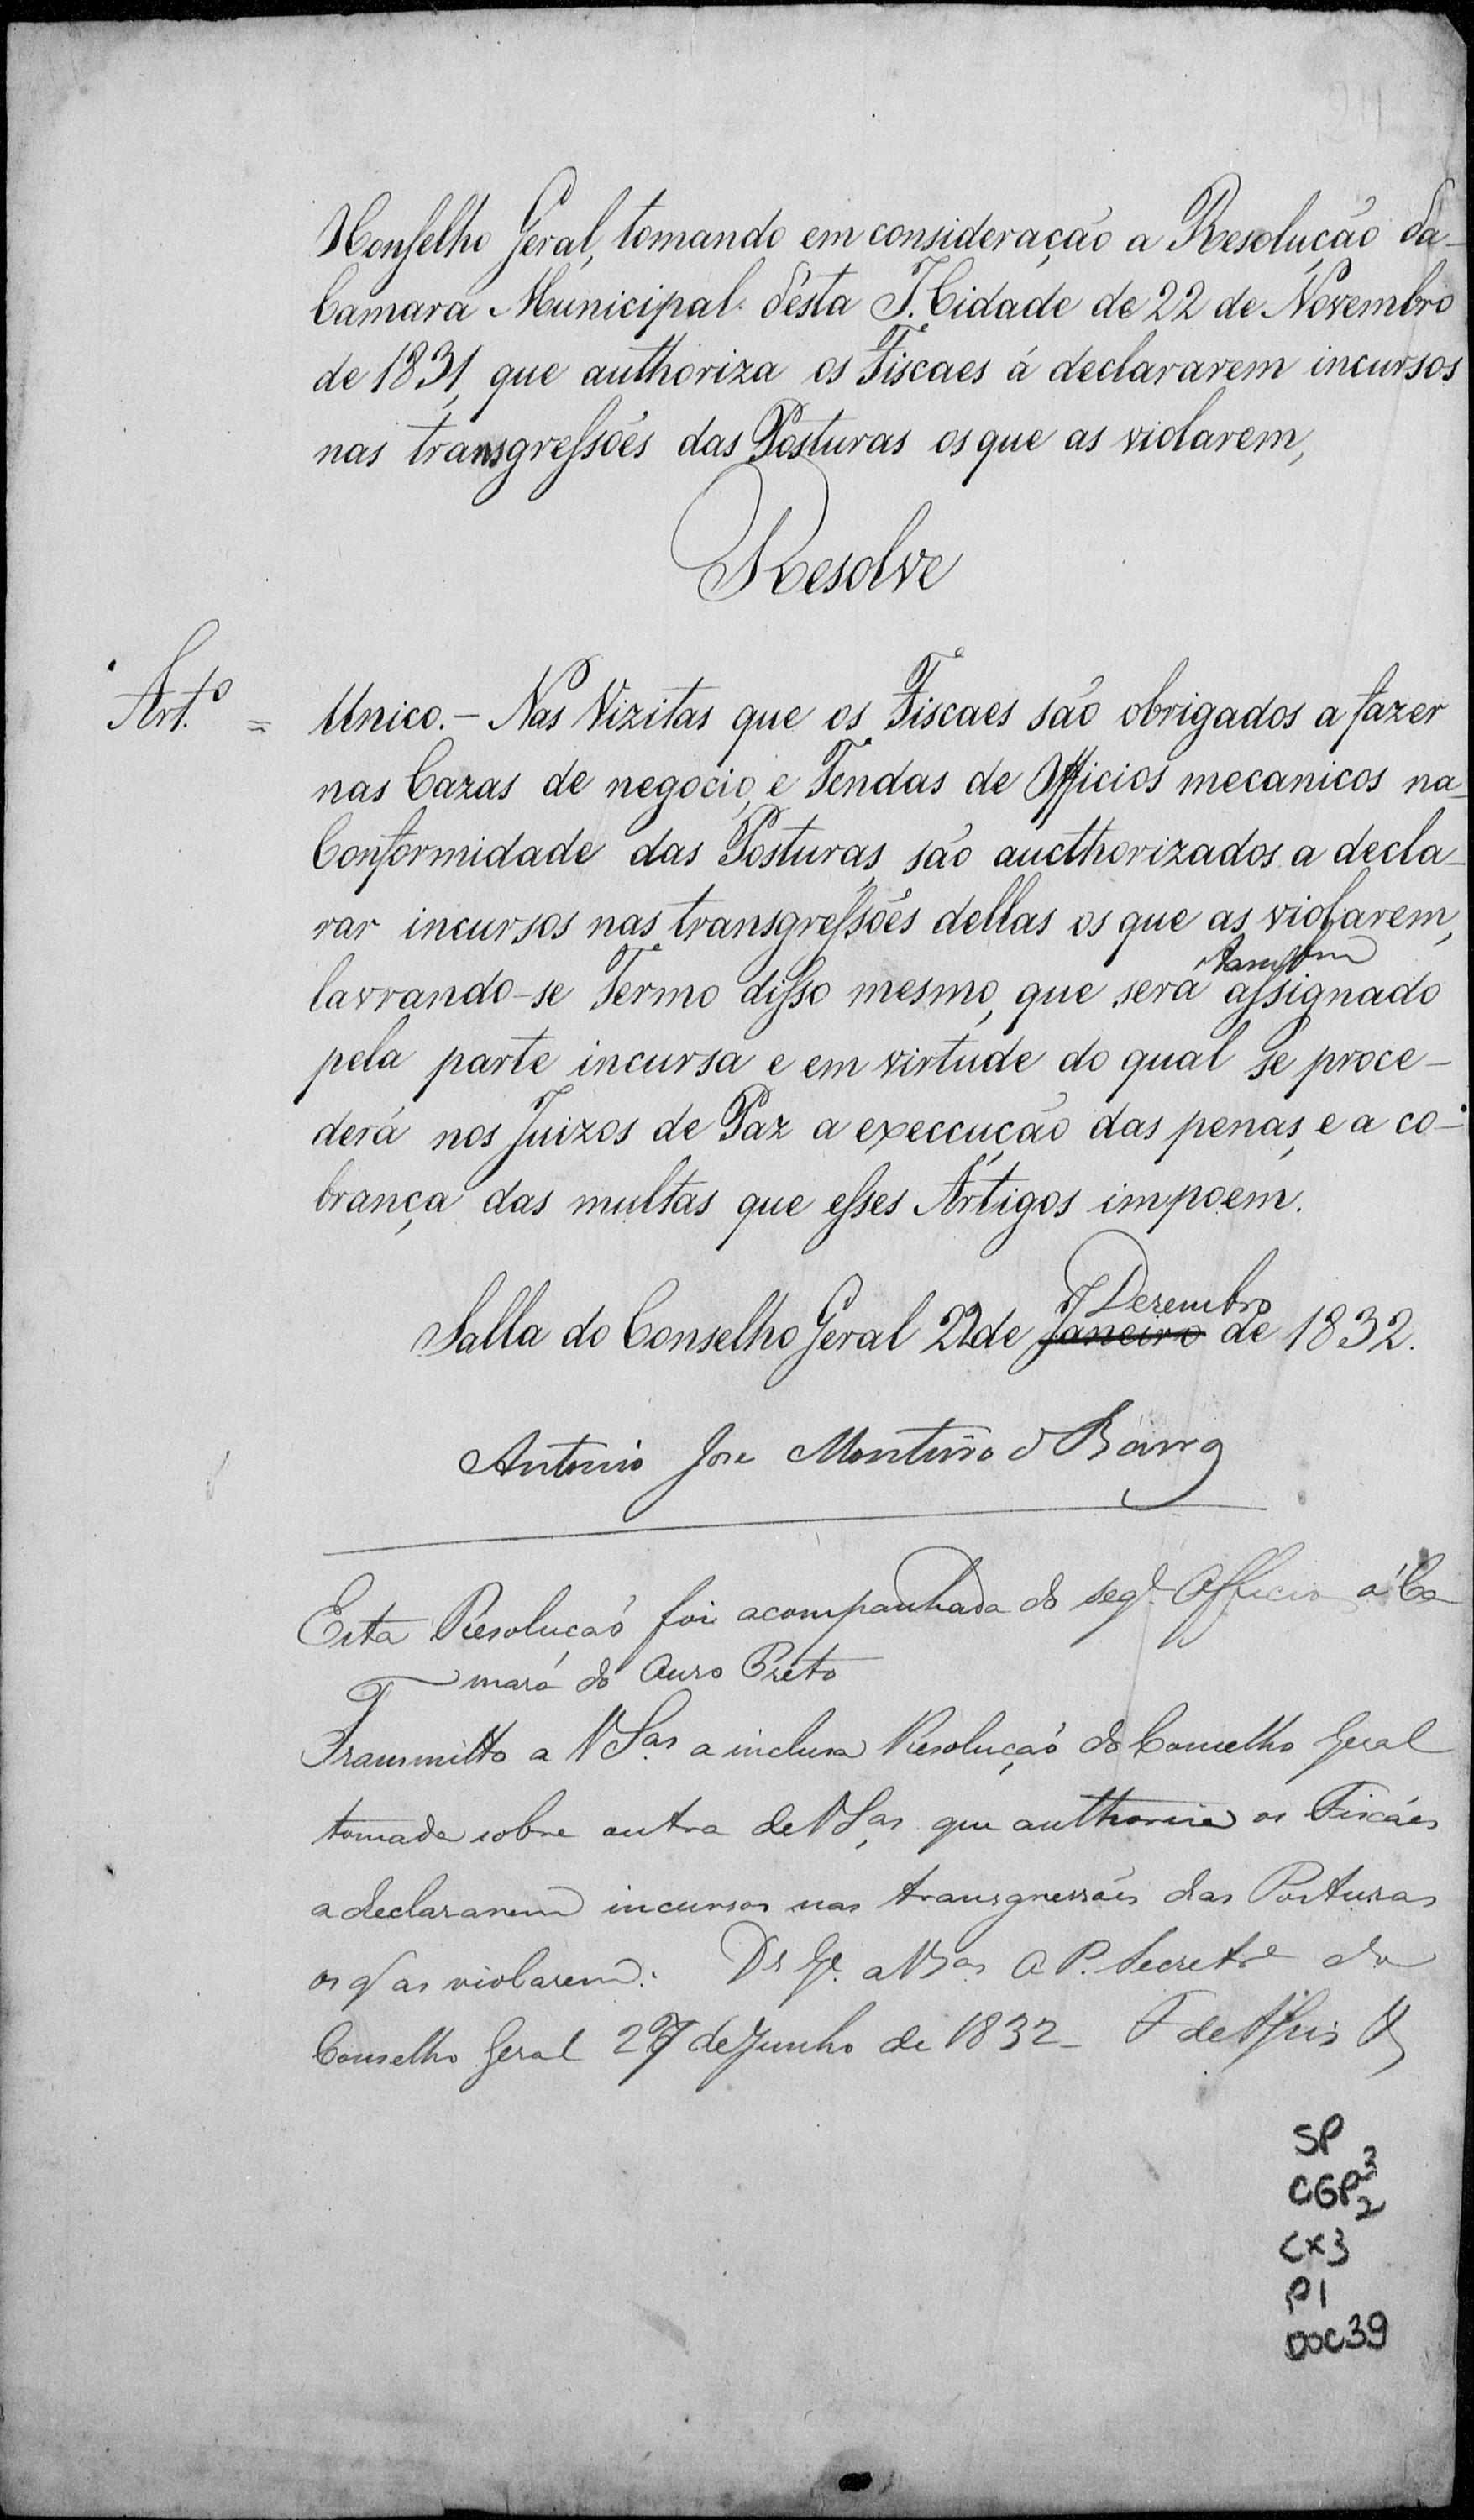 Conselho Geral, tomando em consideração a Resolução da-
Camara Municipal d'esta I. Cidade de 22 de Novembro
de 1831, que authoriza os Fiscaes á declararem incursos
nas transgressões das Posturas os que as violarem,
Resolve
Art.º = Unico. - Nas Vizitas que os Fiscaes são obrigados a fazer
nas Cazas de negocio, e Tendas de Officios mecanicos na-
Conformidade das Posturas, são aucthorizados a decla-
rar incursos nas transgressões dellas os que as violarem,
tambem
lavrando-se Termo disso mesmo, que será assignado
pela parte incursa e em virtude do qual se proce-
derá nos Juizos de Paz a execcução das penas, e a co-
brança das multas que esses Artigos impoem.
Dezembro
Salla do Conselho Geral 22 de Janeiro de 1832.
Antonio Jose Monteiro d Barros
Esta Resolução foi acompanhada do seg.e Officio á Ca
mara do Ouro Preto
Transmitto a VSas a inclusa Resolução do Conselho Geral
tomada sobre outra de VSas que authorisa os Fiscáes
a declararem incursos nas transgressões das Posturas
os q as violarem. Ds Ge. a VSas P. Secretr.a do
Conselho Geral 27 de Junho de 1832 - F de Assis
SP
CGP 3
2
CX3
P1
DOC39